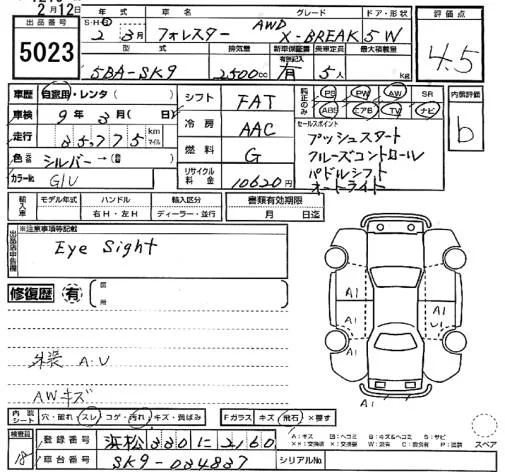 2月12日
出品番号 5023
S・H・R 年式 車名 グレード ドア・形状 評価点
2 3月 フォレスター AWD X-BREAK 5W 4.5
型式 排気量 新車保証書 乗車定員 最大積載量
有無記入
5BA-SK9 2500cc 有 5人 kg
車歴 自家用・レンタ( )
車検 9年3月( 日)
走行 35,775 km マイル
色 シルバー→(替)
カラーNo. G1U
シフト FAT
冷房 AAC
燃料 G
リサイクル料金 10620円
純正のみ PS PW AW SR
ABS エアB TV ナビ
内装評価 b
セールスポイント
プッシュスタート
クルーズコントロール
パドルシフト
オートライト
輸入車 モデル年式 ハンドル 輸入区分
右H・左H ディーラー・並行
書類有効期限
月 日迄
出品店申告欄 ※注意事項等記載
Eye Sight
修復歴 有 箇所
外装 A.U
AWキズ
A1
A1
A1
A1
U1
内装シート 穴・破れ スレ コゲ・汚れ キズ・凹ばみ
Fガラス キズ 飛石 ×要す
スペア
検査員 18
登録番号 浜松330に2160
車台番号 SK9-034837
シリアルNo.